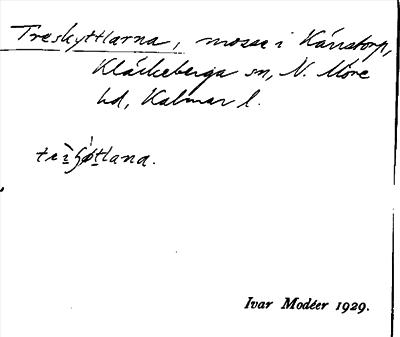 Treskyttlarna, mosse i Kårstorp,
Kläckeberga sn, N. Möre
hd, Kalmar l.
Ivar Modéer 1929.